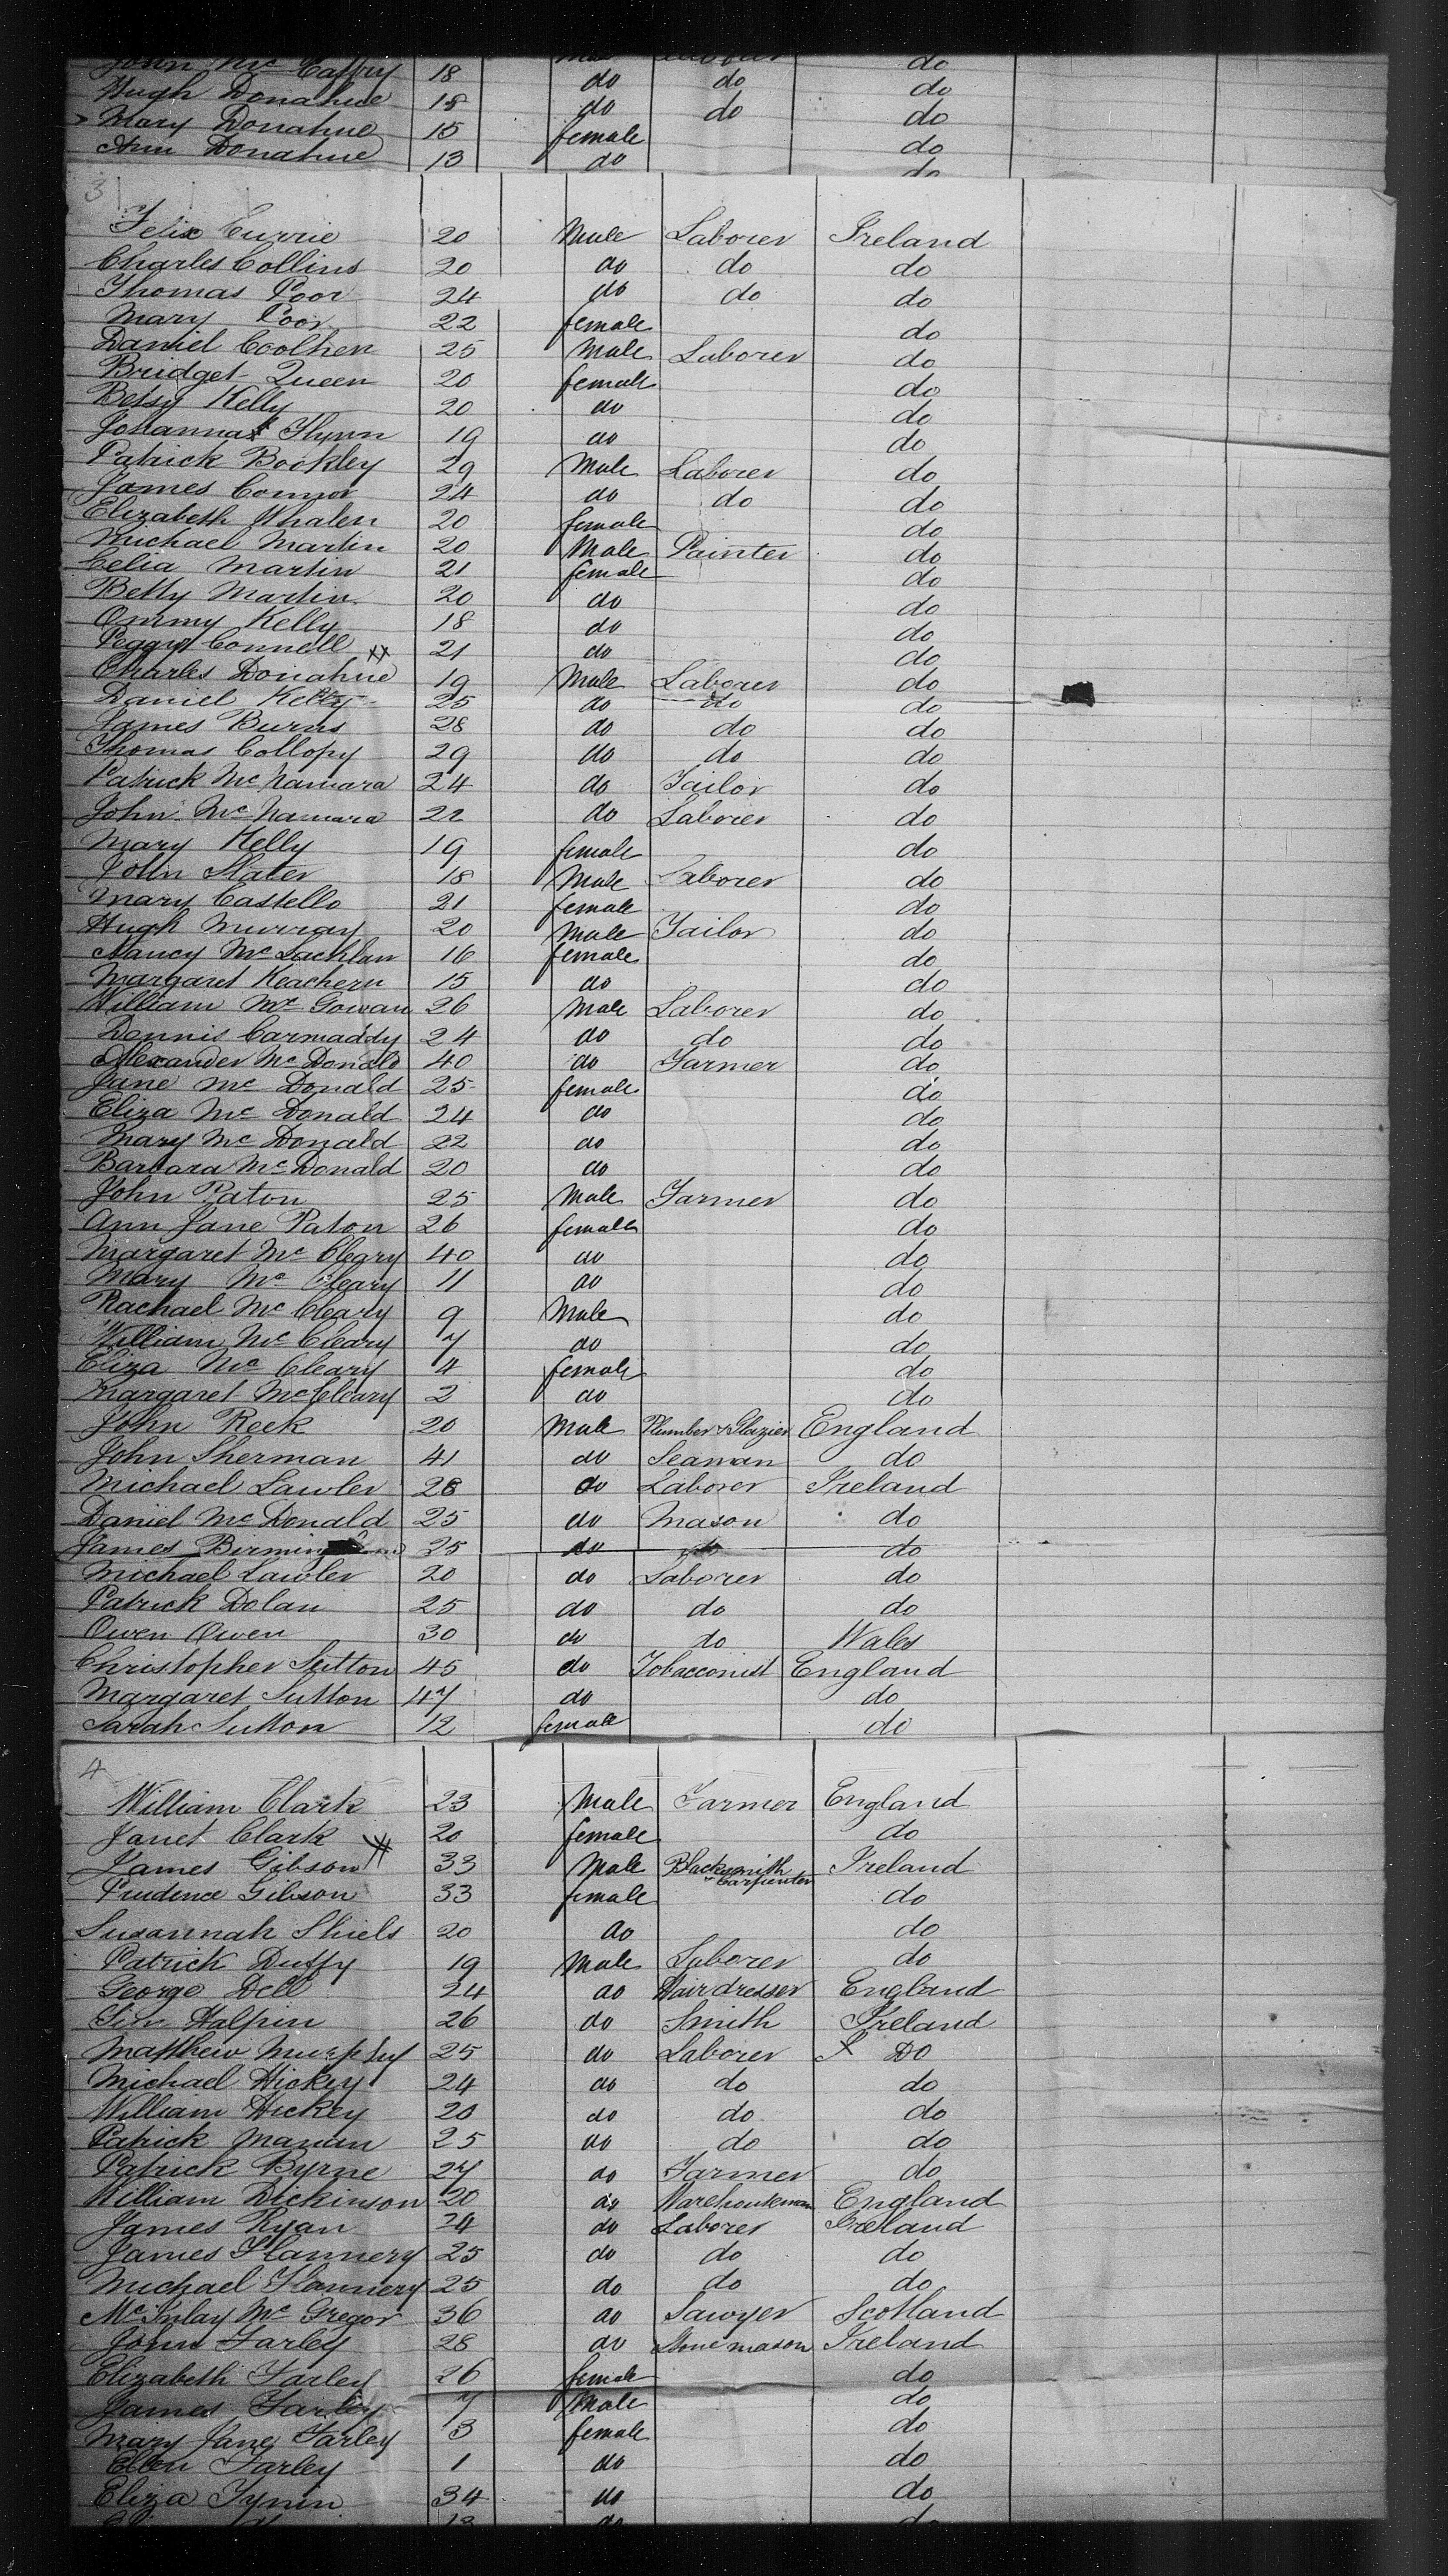 John Mc Caffry 18 do
Hugh Donahue 18 do do do
Mary Donahue 15 do do do
Ann Donahue 13 female do
do do
3
Felix Currie 20 Male Laborer Ireland
Charles Collins 20 do do do
Thomas Poor 24 do do do
Mary Poor 22 female do
Daniel Coolhen 25 Male Laborer do
Bridget Queen 20 female do
Betsy Kelly 20 do do
Johanna Flynn 19 do do
Patrick Bockley 29 Male Laborer do
James Connor 24 do do do
Elizabeth Whalen 20 female do
Michael Martin 20 Male Painter do
Celia Martin 21 female do
Betty Martin 20 do do
Ommy Kelly 18 do do
Peggy Connell xx 21 do do
Charles Donahue 19 Male Laborer do
Daniel Kelly 25 do do do
James Burns 28 do do do
Thomas Collopy 29 do do do
Patrick Mc Namara 24 do Tailor do
John Mc Namara 22 do Laborer do
Mary Kelly 19 female do
John Slater 18 Male Laborer do
Mary Castello 21 female do
Hugh Murray 20 Male Tailor do
Nancy Mc Lachlan 16 female do
Margaret Keachern 15 do do
William Mc Gowan 26 Male Laborer do
Dennis Carmaddy 24 do do do
Alexander Mc Donald 40 do Farmer do
Jane Mc Donald 25 female do
Eliza Mc Donald 24 do do
Mary Mc Donald 22 do do
Barbara Mc Donald 20 do do
John Paton 25 Male Farmer do
Ann Jane Paton 26 female do
Margaret Mc Cleary 40 do do
Mary Mc Cleary 11 do do
Rachael Mc Cleary 9 Male do
William Mc Cleary 7 do do
Eliza Mc Cleary 4 female do
Margaret Mc Cleary 2 do do
John Reek 20 Male Plumber & Glazier England
John Sherman 41 do Seaman do
Michael Lawler 28 do Laborer Ireland
Daniel Mc Donald 25 do Mason do
James 25 do do do
Michael Lawler 20 do Laborer do
Patrick Dolan 25 do do do
Owen Owen 30 do do Wales
Christopher Sutton 45 do Tobacconist England
Margaret Sutton 47 do do
Sarah Sutton 12 female do
4
William Clark 23 Male Farmer England
Janet Clark 20 female do
James Gibson 33 Male Blacksmith Ireland
Carpenter
Prudence Gibson 33 female do
Susannah Shiels 20 do do
Patrick Duffy 19 Male Laborer do
George Dell 24 do Hairdresser England
Halpin 26 do Smith Ireland
Matthew Murphy 25 do Laborer X Do
Michael Hickey 24 do do do
William Hickey 20 do do do
Patrick Manan 25 do do do
Patrick Byrne 27 do Farmer do
William Dickinson 20 do Warehouseman England
James Ryan 24 do Laborer Ireland
James Flannery 25 do do do
Michael Flannery 25 do do do
McKinlay Mc Gregor 36 do Sawyer Scotland
John Farley 28 do Stone mason Ireland
Elizabeth Farley 26 female do
James Farley 7 Male do
Mary Jane Farley 3 female do
Ellen Farley 1 do do
Eliza Tynin 34 do do
13 do do